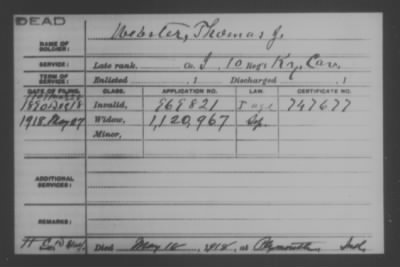 DEAD
NAME OF SOLDIER: Webster, Thomas J.
SERVICE: Late rank, Co. I, 10 Reg't Ky. Cav.
TERM OF SERVICE: Enlisted , 1 Discharged , 1
DATE OF FILING. CLASS. APPLICATION NO. LAW. CERTIFICATE NO.
1890 Dec 18 Invalid, 969821 747677
1918 May 27 Widow, 1,120,967
Minor,
ADDITIONAL SERVICES:
REMARKS:
Died May 12, 1918, at Plymouth, Ind.